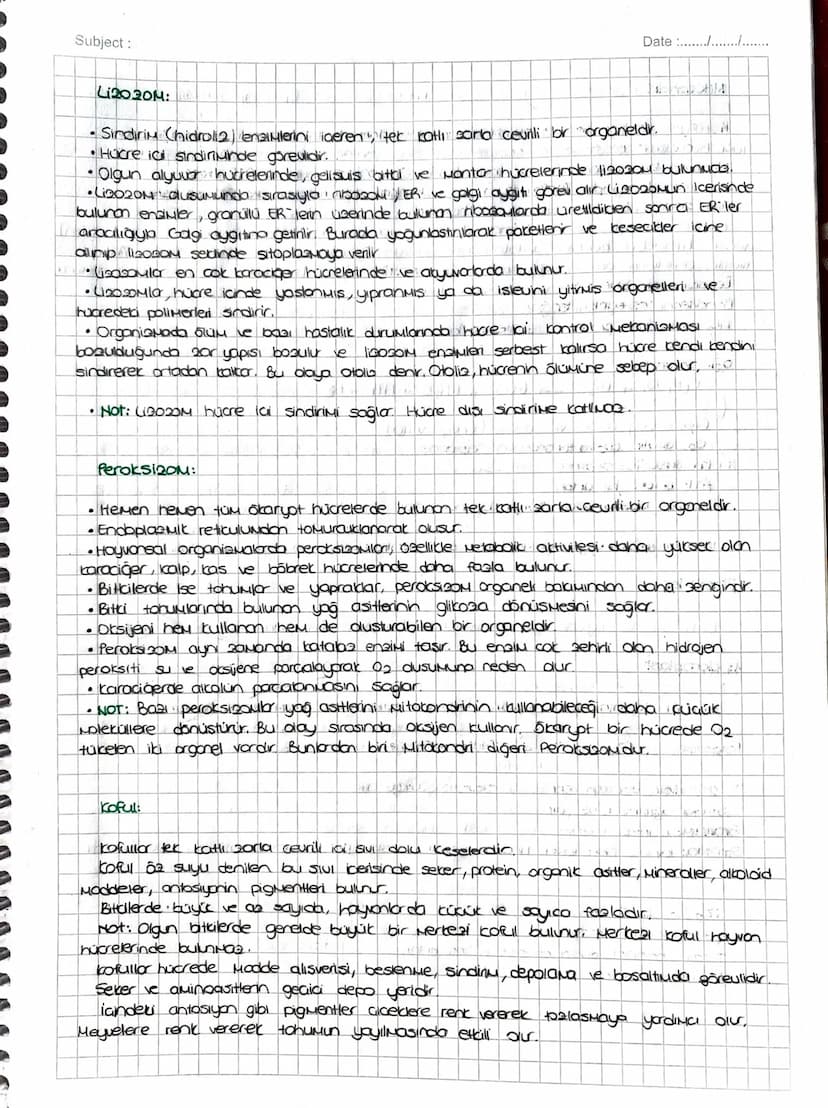 Subject :
Date :......./......./.......
Lizozom:
• Sindirim (hidroliz) enzimlerini içeren, tek katlı zarla çevrili bir organeldir.
• Hücre içi sindiriminde görevlidir.
• Olgun alyuvar hücrelerinde, gelişmiş bitki ve mantar hücrelerinde lizozom bulunmaz.
• Lizozom oluşumunda sırasıyla ribozom, ER ve golgi aygıtı görev alır. Lizozomun içerisinde
bulunan enzimler, granüllü ER'lerin üzerinde bulunan ribozomlarda üretildikten sonra ER'ler
aracılığıyla Golgi aygıtına getirilir. Burada yoğunlaştırılarak paketlenir ve kesecikler içine
alınıp lizozom şeklinde sitoplazmaya verilir
• Lizozomlar en çok karaciğer hücrelerinde ve akyuvarlarda bulunur.
• Lizozomlar, hücre içinde yaşlanmış, yıpranmış ya da işlevini yitirmiş organelleri ve
hücredeki polimerleri sindirir.
• Organizmada ölüm ve bazı hastalık durumlarında hücre içi kontrol mekanizması
bozulduğunda zar yapısı bozulur ve lizozom enzimleri serbest kalırsa hücre kendi kendini
sindirerek ortadan kalkar. Bu olaya otoliz denir. Otoliz, hücrenin ölümüne sebep olur.
• Not: Lizozom hücre içi sindirimi sağlar. Hücre dışı sindirime katılmaz.
Peroksizom:
• Hemen hemen tüm ökaryot hücrelerde bulunan tek katlı zarla çevrili bir organeldir.
• Endoplazmik retikulundan tomurcuklanarak oluşur.
• Hayvansal organizmalarda peroksizomlar, özellikle metabolik aktivitesi daha yüksek olan
karaciğer, kalp, kas ve böbrek hücrelerinde daha fazla bulunur.
• Bitkilerde ise tohumlar ve yapraklar, peroksizom organeli bakımından daha zengindir.
• Bitki tohumlarında bulunan yağ asitlerinin glikoza dönüşmesini sağlar.
• Oksijeni hem kullanan hem de oluşturabilen bir organeldir.
• Peroksizom aynı zamanda katalaz enzimi taşır. Bu enzim çok zehirli olan hidrojen
peroksiti su ve oksijene parçalayarak O2 oluşumuna neden olur.
• Karaciğerde alkolün parçalanmasını sağlar.
• NOT: Bazı peroksizomlar yağ asitlerini mitokondrinin kullanabileceği daha küçük
moleküllere dönüştürür. Bu olay sırasında oksijen kullanır. Ökaryot bir hücrede O2
tüketen iki organel vardır. Bunlardan biri Mitokondri diğeri Peroksizomdur.
Koful:
Kofullar tek katlı zarla çevrili içi sıvı dolu keselerdir.
Koful öz suyu denilen bu sıvı içerisinde şeker, protein, organik asitler, mineraller, alkoloid
maddeler, antosiyanin pigmentleri bulunur.
Bitkilerde büyük ve az sayıda, hayvanlarda küçük ve sayıca fazladır.
Not: Olgun bitkilerde genelde büyük bir merkezi koful bulunur. Merkezi koful hayvan
hücrelerinde bulunmaz.
Kofullar hücrede madde alışverişi, beslenme, sindirim, depolama ve boşaltımda görevlidir.
Şeker ve aminoasitlerin geçici depo yeridir.
İçindeki antosiyan gibi pigmentler çiçeklere renk vererek tozlaşmaya yardımcı olur.
Meyvelere renk vererek tohumun yayılmasında etkili olur.